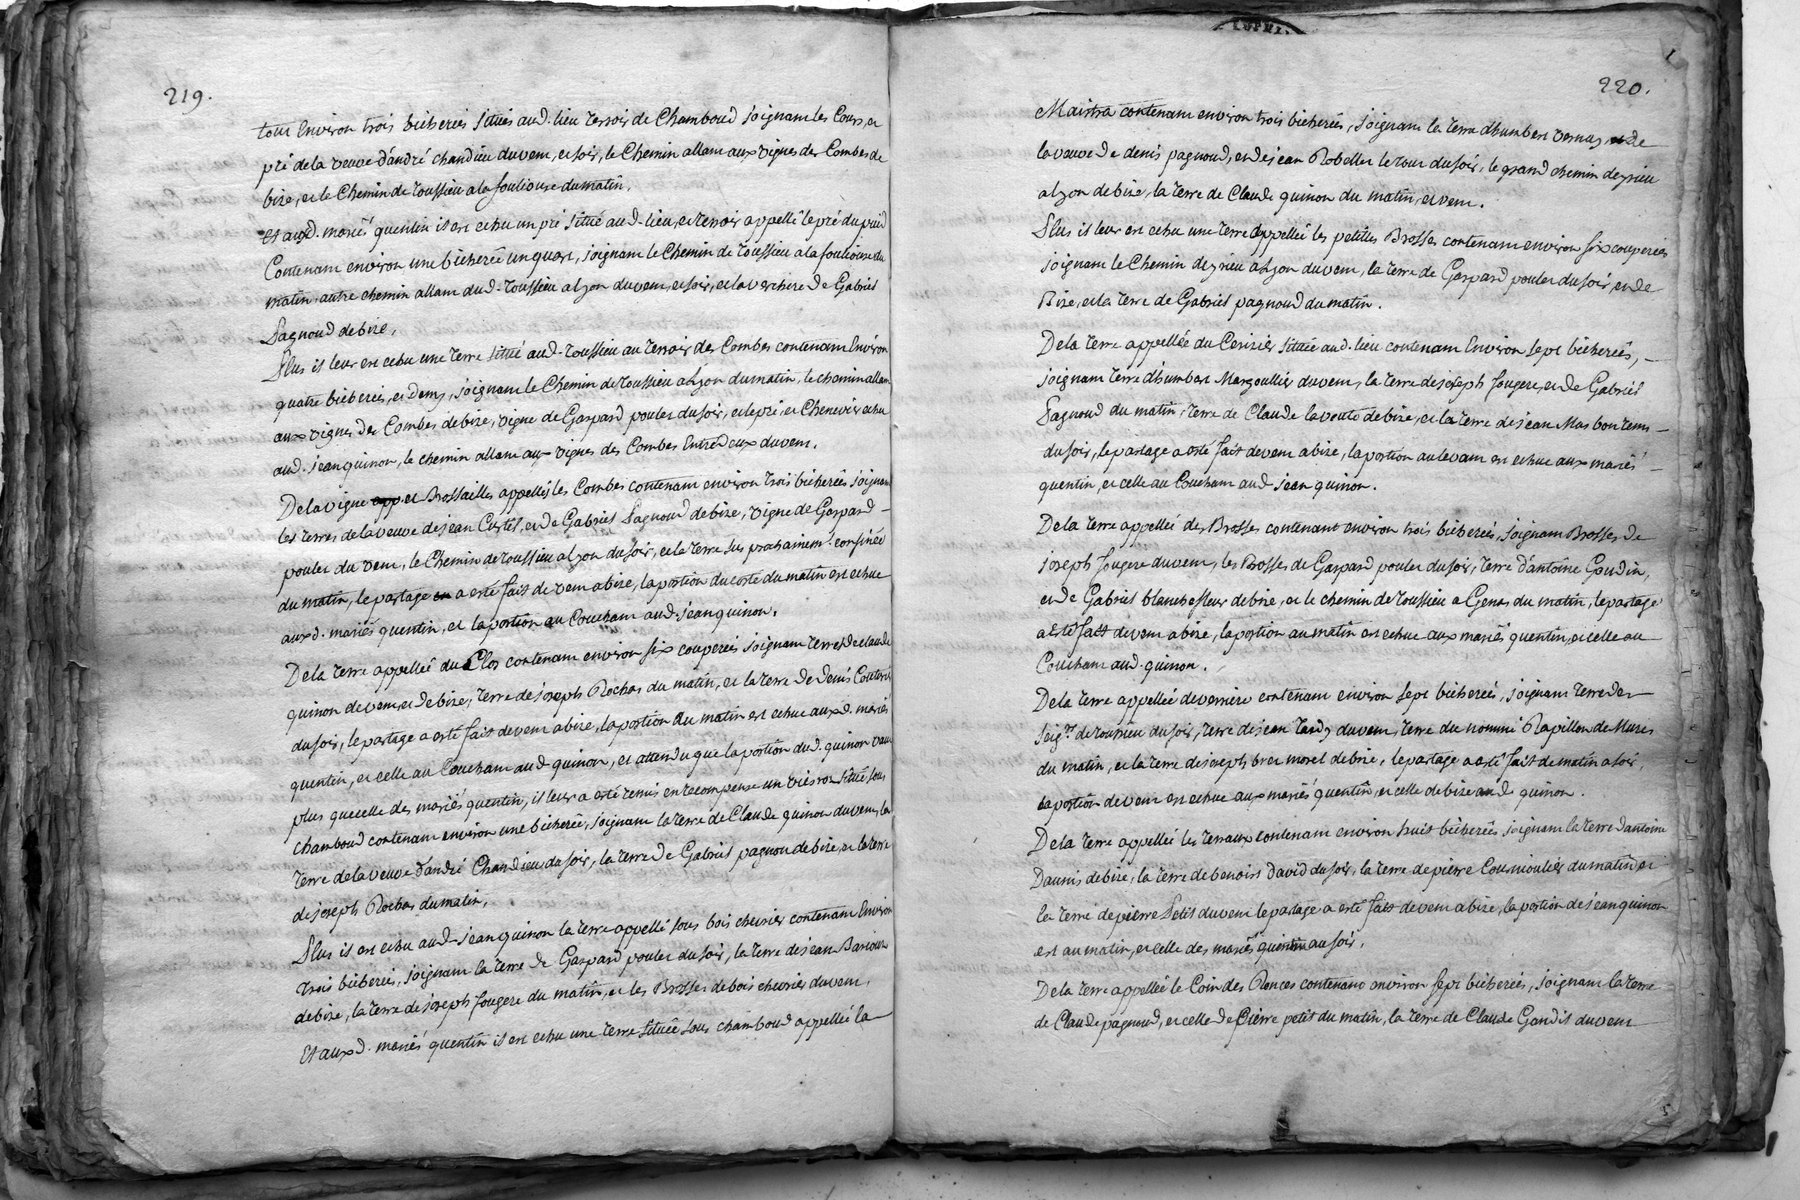 219.
tout Environ trois bicherées situés aud. lieu terroir de Chamboud joignant les Cours, et
pré de la veuve d'andré chandieu du vent, et soir, le Chemin allant aux vignes des Combes de
bize, et le Chemin de toussieu a la fouliouse du matin.
Et auxd. mariés quentin il est echu un pré situé aud. lieu, et terroir appellé le pré du puid
Contenant environ une bicherée un quart, joignant le Chemin de toussieu a la fouliouse du
matin, autre chemin allant dud. toussieu a lyon du vent, et soir, et la verchere de Gabriel
Pagnoud de bize,
Plus il leur est echu une terre situé aud. toussieu au terroir des Combes contenant Environ
quatre bicherées, et demy, joignant le Chemin de toussieu a lyon du matin, le chemin allant
aux vignes des Combes de bize, vigne de Gaspard poulet du soir, et le pré, et Chenevier echu
aud. jean quinon, le chemin allant aux vignes des Combes Entredeux du vent.
De la vigne et Brossailles appellés les Combes contenant environ trois bicherées joignant
les terres de la veuve de jean Curtet, et de Gabriel Pagnoud de bize, vigne de Gaspard
poulet du vent, le Chemin de toussieu a lyon du soir, et la terre sus prochainemt. confinée
du matin, le partage a esté fait de vent a bize, la portion du costé du matin est echue
auxd. mariés quentin, et la portion au Couchant aud. jean quinon.
De la terre appellée du Clos contenant environ six couperées joignant terre de claude
quinon de vent, et de bize, terre de joseph Rochas du matin, et la terre de Denis Couturier
du soir, le partage a esté fait de vent a bize, la portion du matin est echue auxd. mariés
quentin, et celle au Couchant aud. quinon, et attendu que la portion dud. quinon vaut
plus que celle des mariés quentin, il leur a esté remis en recompense un situé sous
chamboud contenant environ une bicherée, joignant la terre de Claude quinon du vent, la
terre de la veuve d'andré Chandieu du soir, la terre de Gabriel pagnou de bize, et la terre
de joseph Rochas du matin,
Plus il est echu aud. jean quinon la terre appellé sous bois chevrier contenant Environ
trois bicherées, joignant la terre de Gaspard poulet du soir, la terre de jean Barioux
de bize, la terre de joseph fougere du matin, et les Brosses de bois chevrier du vent,
Et auxd. mariés quentin il est echu une terre située sous chamboud appellée la
220.
Maistra contenant environ trois bicherées, joignant la terre d'humbert vernay de
la veuve de denis pagnoud, et de jean Robellet le tout du soir, le grand chemin deyrieu
a lyon de bize, la terre de Claude quinon du matin, et vent.
Plus il leur est echu une terre appellée les petittes Brosses contenant environ six couperées
joignant le Chemin deyrieu a lyon du vent, la terre de Gaspard poulet du soir, et de
Bize, et la terre de Gabriel pagnoud du matin.
De la terre appellée du Cerizier située aud. lieu contenant Environ sept bicherées,
joignant terre d'humbert Margoullier du vent, la terre de joseph fougere, et de Gabriel
Pagnoud du matin, terre de Claude lavente de bize, et la terre de jean Mas bontems
du soir, le partage a esté fait de vent a bize, la portion au levant est echue aux mariés
quentin, et celle au Couchant aud. jean quinon.
De la terre appellée des Brosses contenant environ trois bicherées, joignant Brosses de
joseph fougere du vent, les Brosses de Gaspard poulet du soir, terre d'antoine Goudin,
et de Gabriel blancheffleur de bize, et le chemin de toussieu a Genas du matin, le partage
a esté fait de vent a bize, la portion au matin est echue aux mariés quentin, et celle au
Couchant aud. quinon.
De la terre appellée deverriere contenant environ sept bicherées, joignant terre des
seigrs. de toussieu du soir, terre de jean tardy du vent, terre du nommé Papillon de Mures
du matin, et la terre de joseph bret morel de bize, le partage a esté fait de matin a soir,
la portion de vent est echue aux mariés quentin, et celle de bize aud. quinon.
De la terre appellée les terraux contenant environ huit bicherées joignant la terre d'antoine
Daunis de bize, la terre de benoist david du soir, la terre de pierre Cournioulier du matin, et
la terre de pierre Petit du vent le partage a esté fait de vent a bize, la portion de jean quinon
est au matin, et celle des mariés quentin au soir,
De la terre appellée le Coin des Ronces contenant environ sept bicherées, joignant la terre
de Claude pagnoud, et celle de pierre petit du matin, la terre de Claude Gondis du vent